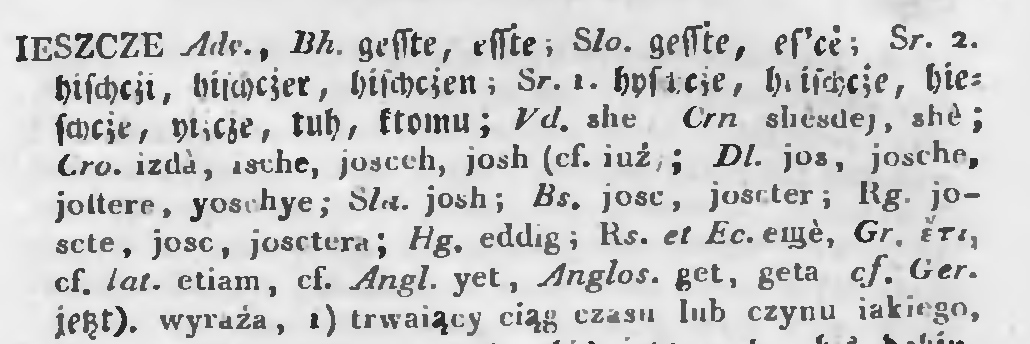 IESZCZE Adv., Bh. geſſte, eſſte; Slo. geſſte, eſ'cė; Sr. 2.
hiſchcji, hiſchcjer, hiſchcjen; Sr. 1. hie=
ſchcje, tuh, ktomu; Vd. she Crn shèsdej, shè;
Cro. izdà, ische, josceh, josh (cf. iuż; Dl. jos, josche,
jottere, yoschye; Sla. josh; Bs. josc, joscter; Rg. jo-
scte, josc, josctera; Hg. eddig; Rs. et Ec. ещè, Gr. ἔτι,
cf. lat. etiam, cf. Angl. yet, Anglos. get, geta cf. Ger.
jetzt). wyraża, 1) trwaiący ciąg czasu lub czynu iakiego,